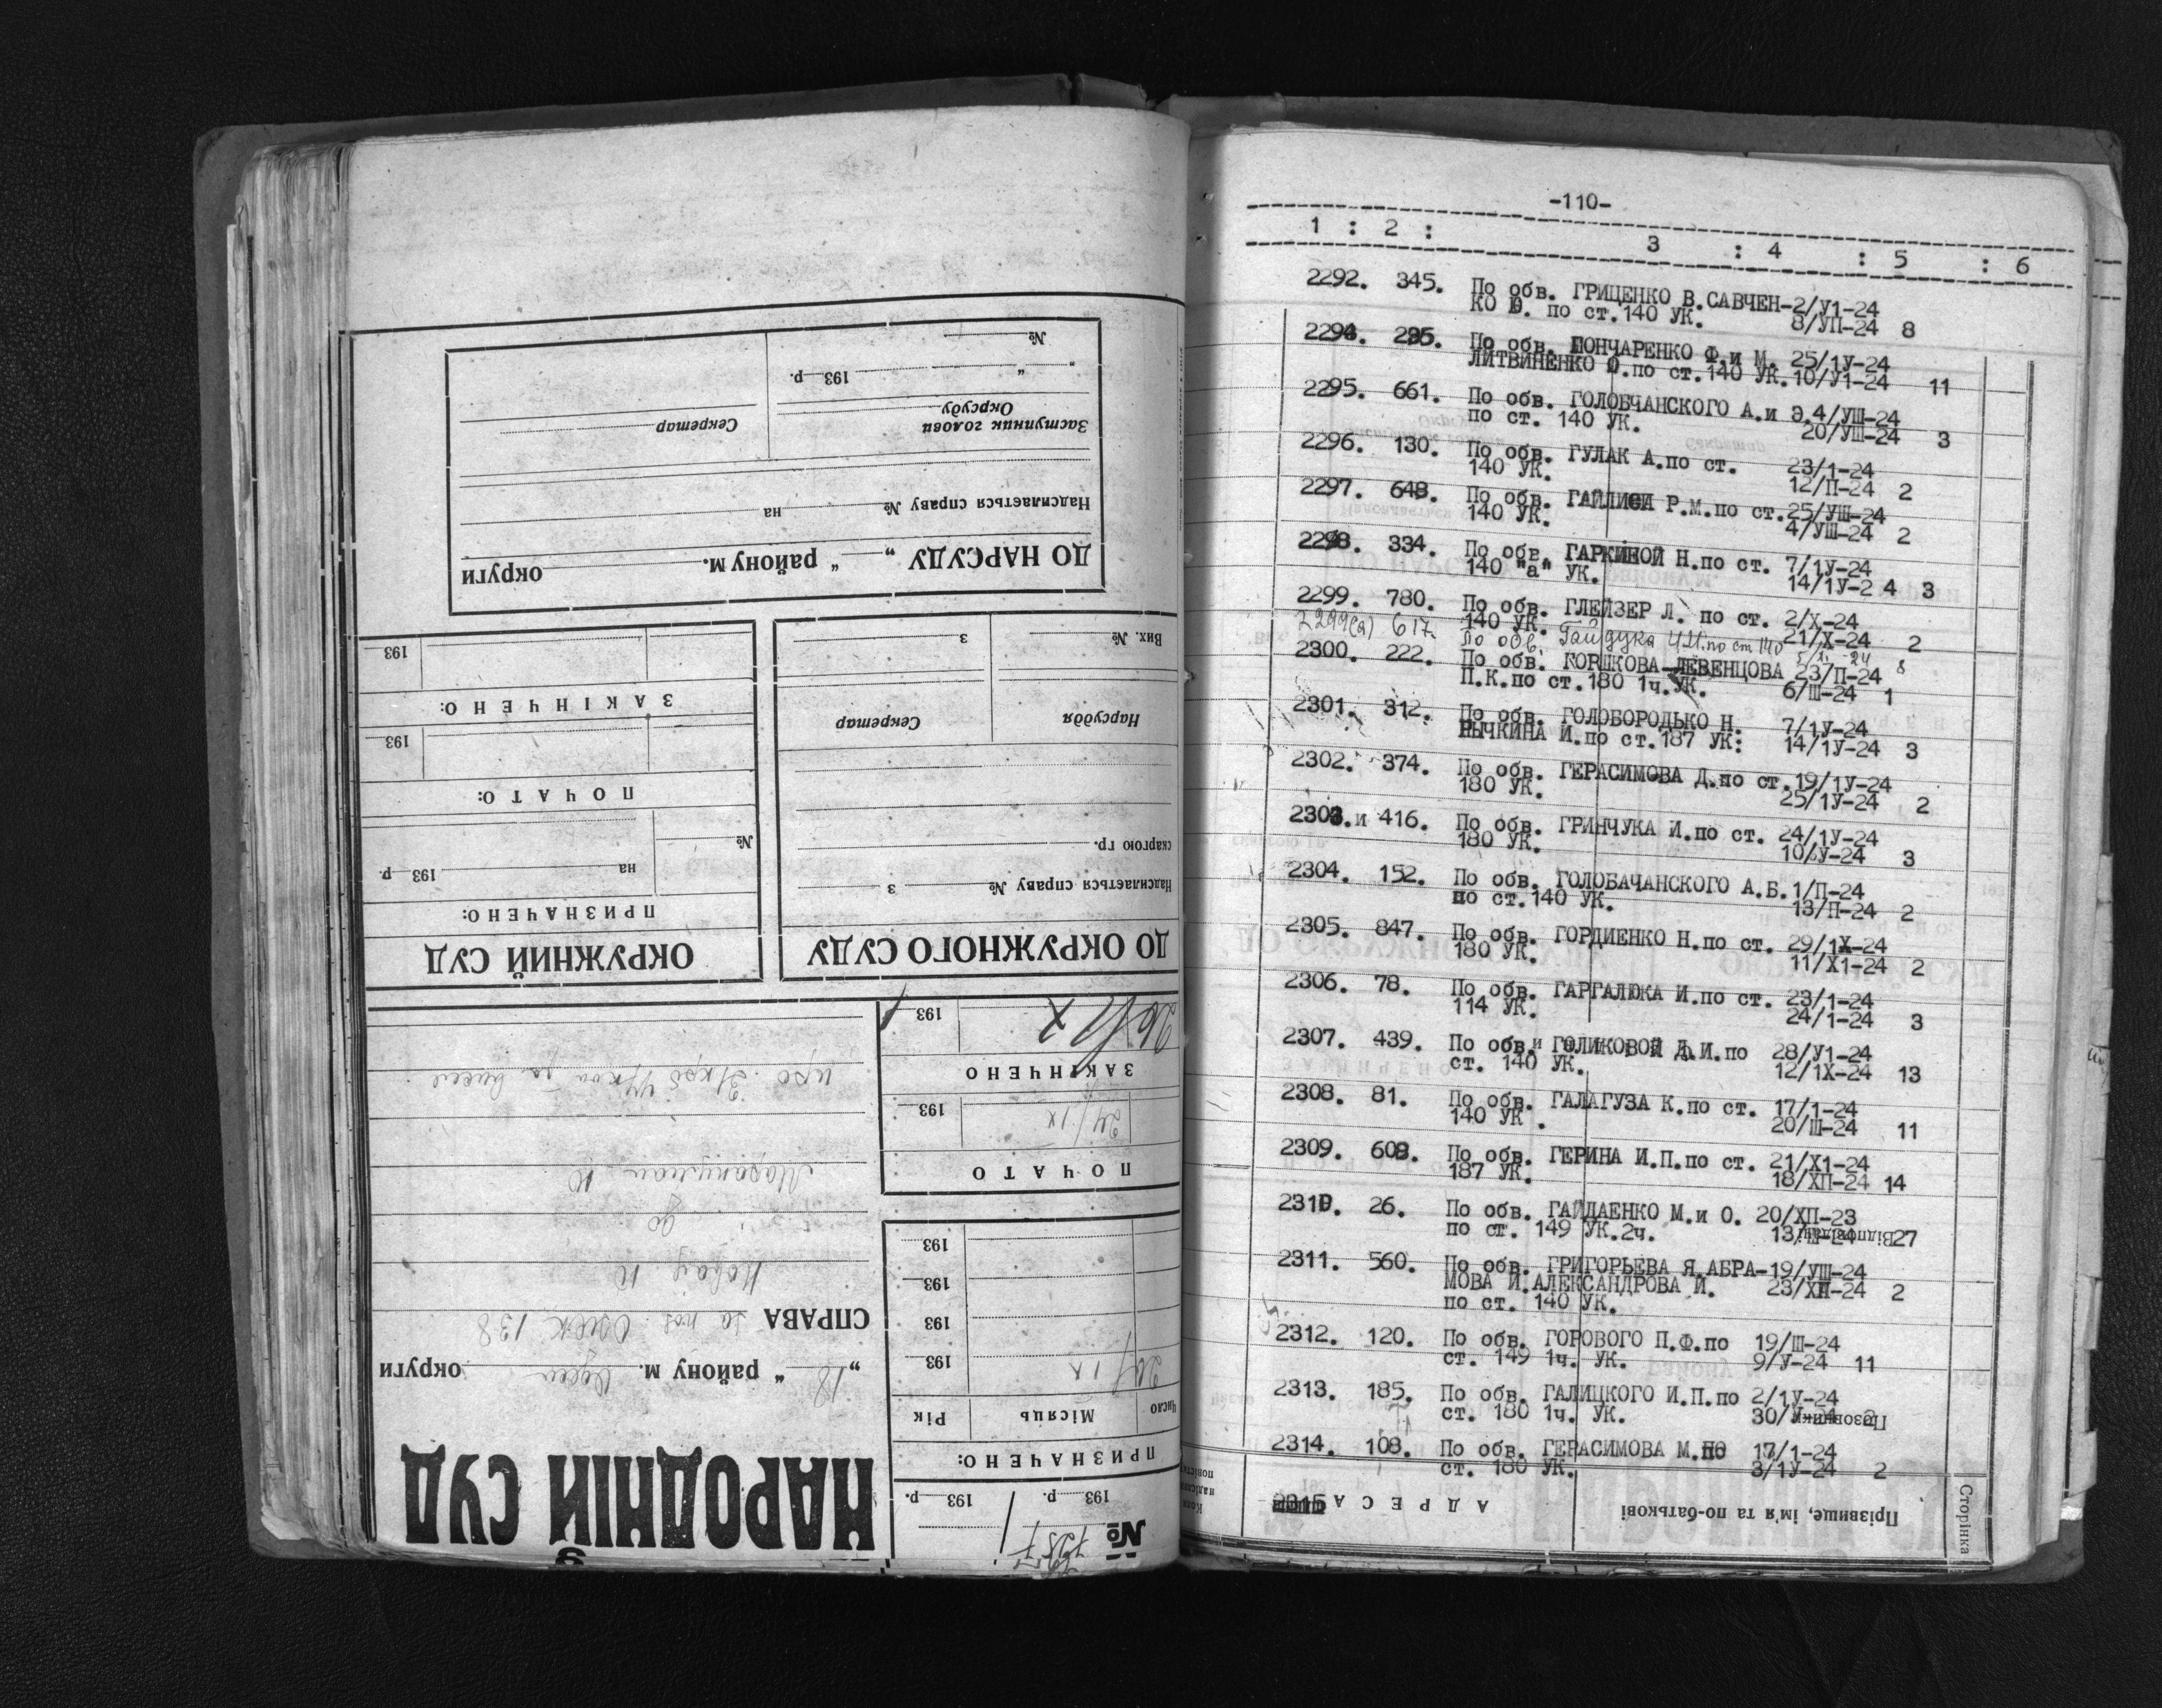 №
"
"
193 р.
Заступник голови
Окрсуду
Секретар
Надсилається справу №
на
ДО НАРСУДУ „ “ району м. округи
Вих. №
з
193
ЗАКІНЧЕНО:
Нарсуддя
Секретар
193
ПОЧАТО:
скаргою гр.
№
на 193 р.
Надсилається справу № з
ПРИЗНАЧЕНО:
ДО ОКРУЖНОГО СУДУ
ОКРУЖНИЙ СУД
193
ЗАКІНЧЕНО
24/IX
193
ПОЧАТО
193
193
193
193
Число
Місяць
Рік
ПРИЗНАЧЕНО:
193 р.
193 р.
№
СПРАВА
„18“ району м. округи
НАРОДНІЙ СУД
-110-
1 : 2 : 3 : 4 : 5 : 6
2292. 345. По обв. ГРИЦЕНКО В.САВЧЕН-2/У1-24
КО Ю. по ст.140 УК. 8/УП-24 8
2294. 295. По обв. ГОНЧАРЕНКО Ф.и М. 25/1У-24
ЛИТВИНЕНКО Ю.по ст.140 УК.10/У1-24 11
2295. 661. По обв. ГОЛОБЧАНСКОГО А.и Э.4/УШ-24
по ст. 140 УК. 20/УШ-24 3
2296. 130. По обв. ГУЛАК А.по ст. 23/1-24
140 УК. 12/П-24 2
2297. 648. По обв. ГАЙЛИСА Р.М.по ст.25/УШ-24
140 УК. 4/УШ-24 2
2298. 334. По обв. ГАРКИНОЙ Н.по ст. 7/1У-24
140 "а" УК. 14/1У-24 3
2299. 780. По обв. ГЛЕЙЗЕР Л. по ст. 2/Х-24
140 УК. 21/Х-24 2
2299(а) 617. По обв. Гайдука И.И. по ст 140
2300. 222. По обв. ГОРШКОВА-ЛЕВЕНЦОВА 23/П-24
П.К.по ст.180 1ч.УК. 6/Ш-24 1
2301. 312. По обв. ГОЛОБОРОДЬКО Н. 7/1У-24
РЫЧКИНА И.по ст.187 УК: 14/1У-24 3
2302. 374. По обв. ГЕРАСИМОВА Д.по ст.19/1У-24
180 УК. 25/1У-24 2
2303.и 416. По обв. ГРИНЧУКА И.по ст. 24/1У-24
180 УК. 10/У-24 3
2304. 152. По обв. ГОЛОБАЧАНСКОГО А.Б.1/П-24
по ст.140 УК. 13/П-24 2
2305. 847. По обв. ГОРДИЕНКО Н.по ст. 29/1Х-24
180 УК. 11/Х1-24 2
2306. 78. По обв. ГАРГАЛЮКА И.по ст. 23/1-24
114 УК. 24/1-24 3
2307. 439. По обв. ГОЛИКОВОЙ Д.И.по 28/У1-24
ст. 140 УК. 12/1Х-24 13
2308. 81. По обв. ГАЛАГУЗА К.по ст. 17/1-24
140 УК. 20/Ш-24 11
2309. 608. По обв. ГЕРИНА И.П.по ст. 21/Х1-24
187 УК. 18/ХП-24 14
2310. 26. По обв. ГАЙДАЕНКО М.и О. 20/ХП-23
по ст. 149 УК.2ч. 13/Ш-24 27
2311. 560. По обв. ГРИГОРЬЕВА Я.АБРА-19/УШ-24
МОВА И.АЛЕКСАНДРОВА И. 23/ХП-24 2
по ст. 140 УК.
2312. 120. По обв. ГОРОВОГО П.Ф.по 19/Ш-24
ст. 149 1ч. УК. 9/У-24 11
2313. 185. По обв. ГАЛИЦКОГО И.П.по 2/1У-24
ст. 180 1ч. УК. 30/У-24 2
Позовники
2314. 108. По обв. ГЕРАСИМОВА М.по 17/1-24
ст. 180 УК. 3/1У-24 2
2315
АДРЕСА
Прізвище, ім'я та по-батькові
Сторінка